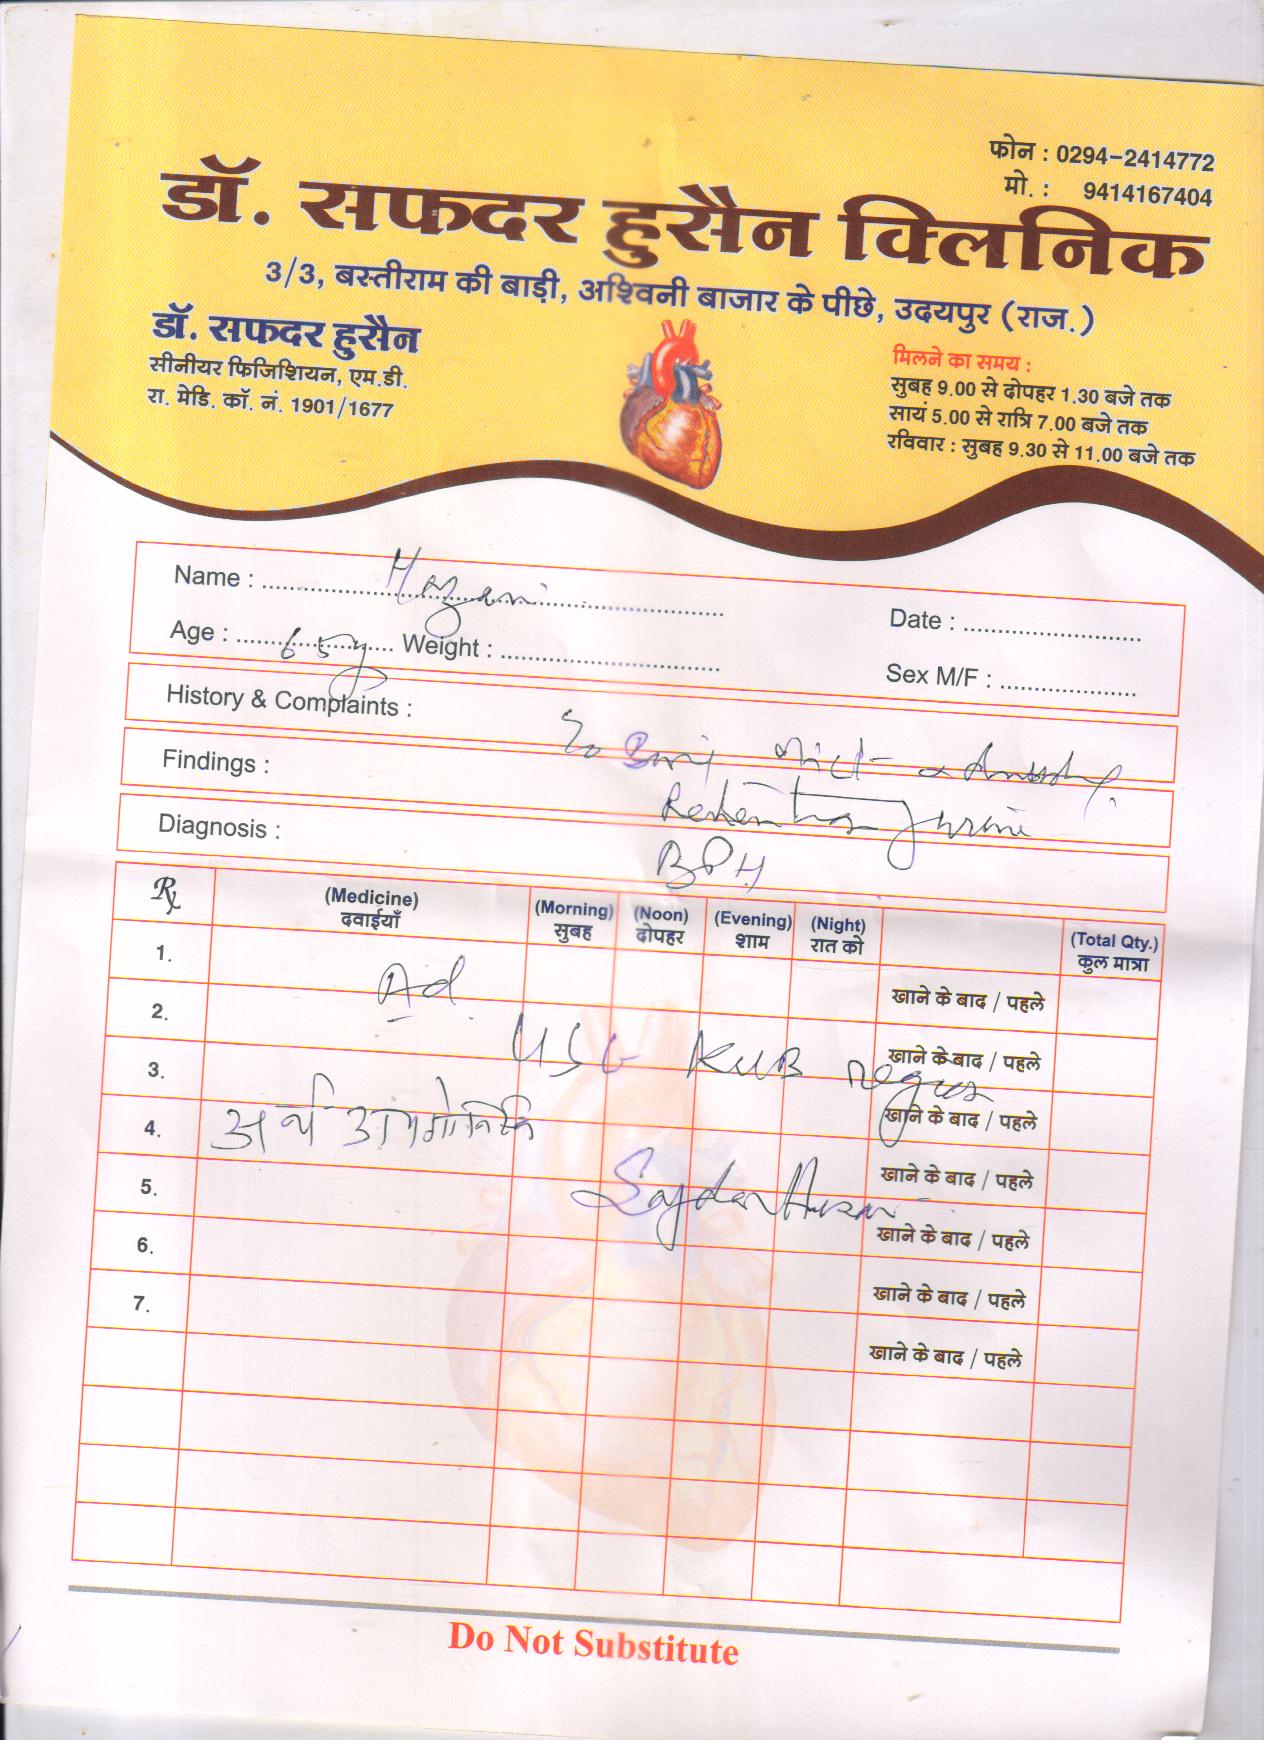 फोन : 0294-2414772
मो. : 9414167404
डॉ. सफदर हुसैन क्लिनिक
3/3, बस्तीराम की बाड़ी, अश्विनी बाजार के पीछे, उदयपुर (राज.)
डॉ. सफदर हुसैन
सीनीयर फिजिशियन, एम.डी.
रा. मेडि. कॉ. नं. 1901/1677
मिलने का समय :
सुबह 9.00 से दोपहर 1.30 बजे तक
सायं 5.00 से रात्रि 7.00 बजे तक
रविवार : सुबह 9.30 से 11.00 बजे तक
Name :
Date :
Age : 65y Weight :
Sex M/F :
History & Complaints :
Findings : Retention urine
Diagnosis : BPH
Rx (Medicine) (Morning) (Noon) (Evening) (Night) (Total Qty.)
दवाईयाँ सुबह दोपहर शाम रात को कुल मात्रा
1. खाने के बाद / पहले
Ad
2. खाने के बाद / पहले
USG KUB
3. खाने के बाद / पहले
4. खाने के बाद / पहले
5. खाने के बाद / पहले
Safdar Husain
6. खाने के बाद / पहले
7. खाने के बाद / पहले
Do Not Substitute